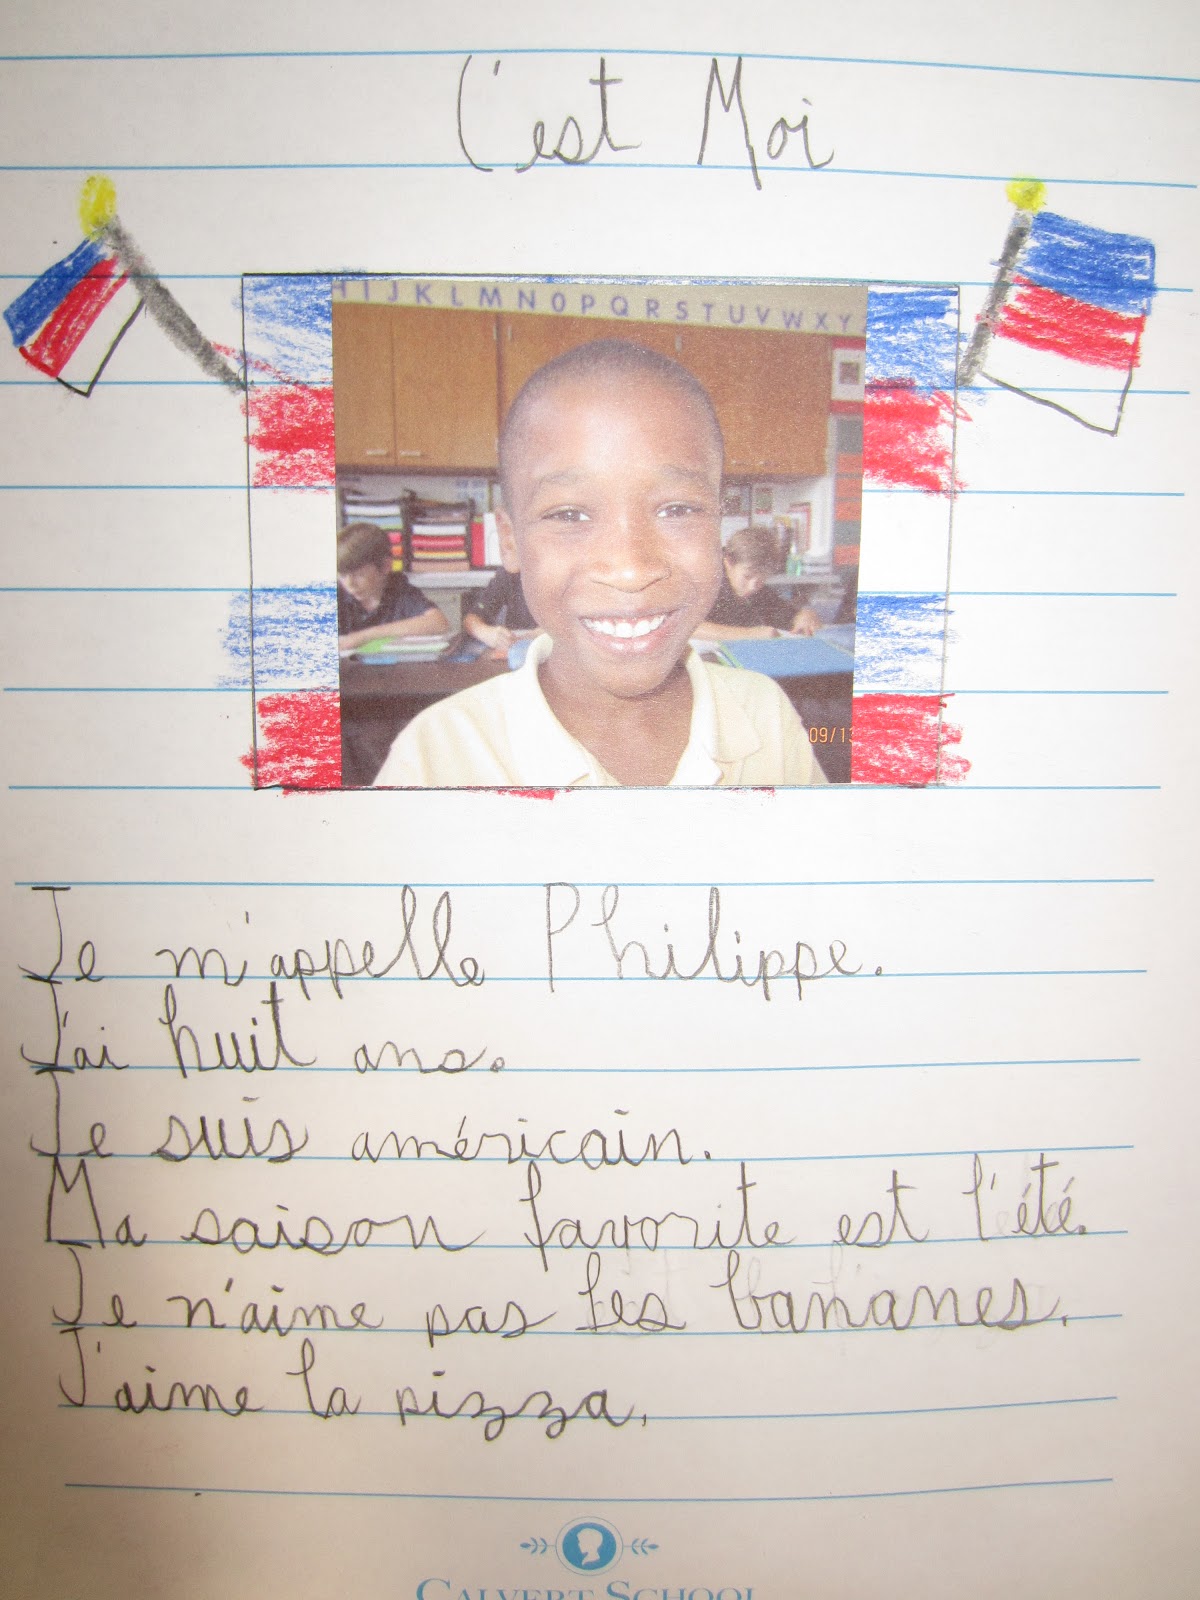 C'est Moi
H I J K L M N O P Q R S T U V W X Y
09/13
Je m'appelle Philippe.
J'ai huit ans.
Je suis américain.
Ma saison favorite est l'été.
Je n'aime pas les bananes.
J'aime la pizza.
CALVERT SCHOOL